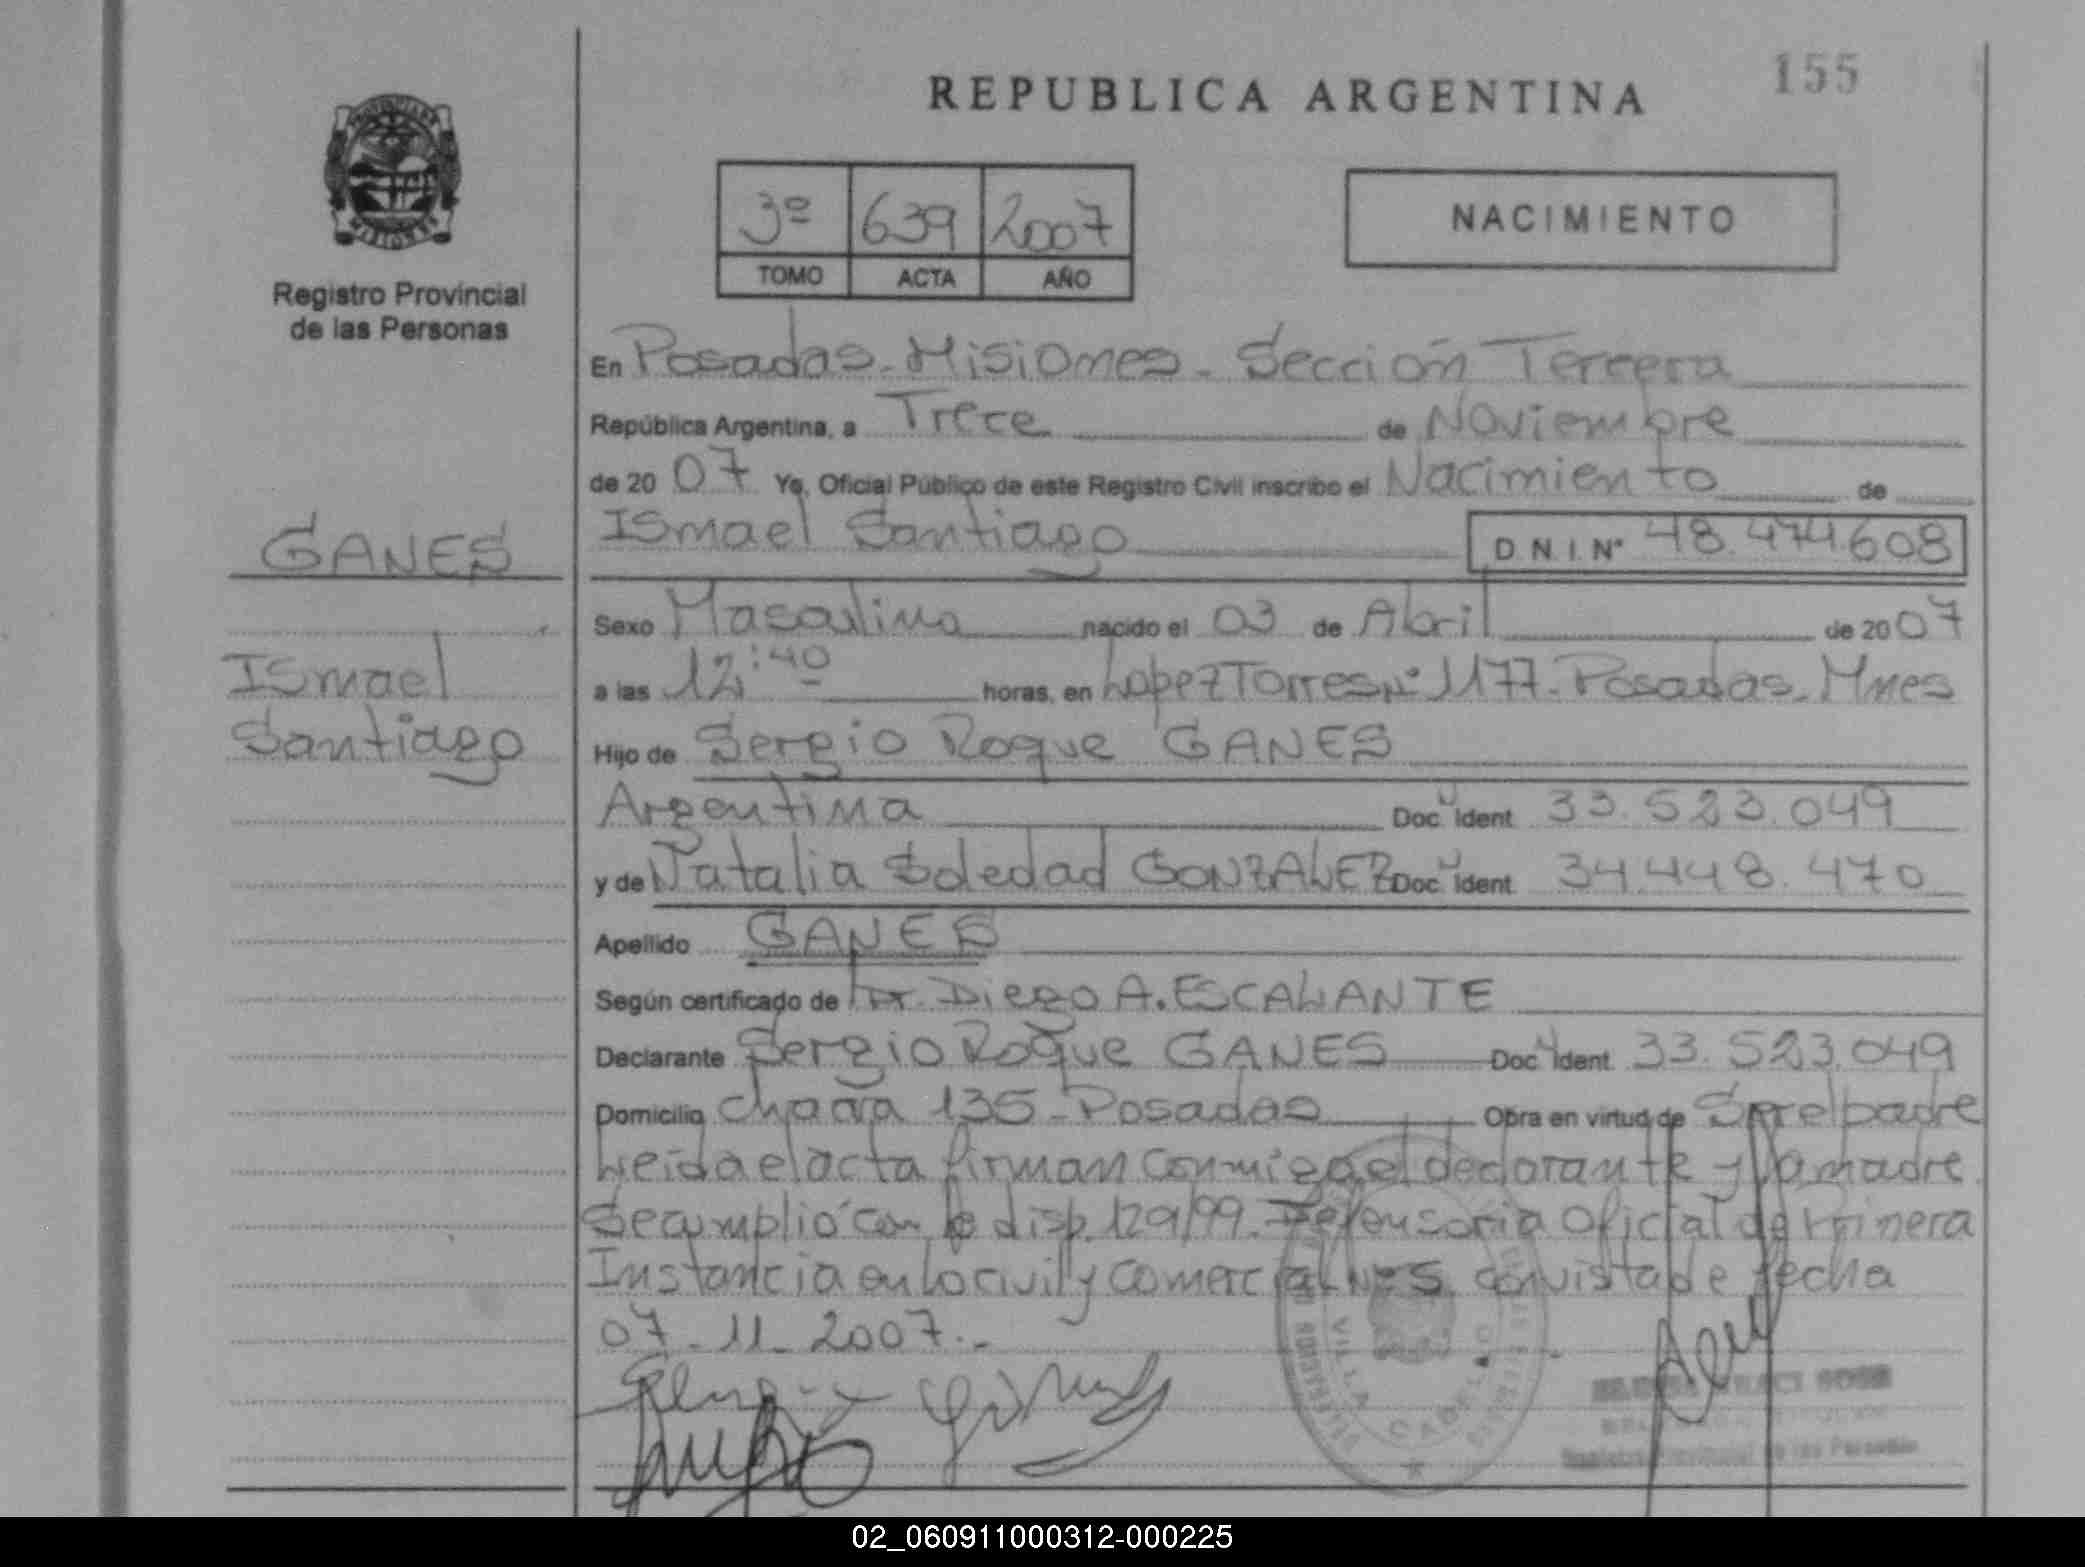 155
REPUBLICA ARGENTINA
PROVINCIA DE
MISIONES
Registro Provincial
de las Personas
3º 639 2007
TOMO ACTA AÑO
NACIMIENTO
En Posadas - Misiones - Sección Tercera
República Argentina, a Trece de Noviembre
de 20 07 Yo, Oficial Público de este Registro Civil inscribo el Nacimiento de
GANES
Ismael Santiago D.N.I. Nº 48.474.608
Sexo Masculino nacido el 03 de Abril de 20 07
Ismael
a las 12:40 horas, en Lopez Torres Nº 1177 - Posadas - Mnes
Santiago
Hijo de Sergio Roque GANES
Argentina Doc. Ident. 33.523.049
y de Natalia Soledad GONZALEZ Doc. Ident. 34.448.470
Apellido GANES
Según certificado de Dr. Diego A. ESCALANTE
Declarante Sergio Roque GANES Doc. Ident. 33.523.049
Domicilio chacra 135 - Posadas Obra en virtud de Ser el padre
Leida el acta firman conmigo el declarante y la madre.
Se cumplió con la disp. 129/99. Defensoria Oficial de Primera
Instancia en lo civil y comercial Nº 5 con vista de fecha
07 - 11 - 2007. -
VILLA CABELLO
Registro Provincial de las Personas
02_060911000312-000225